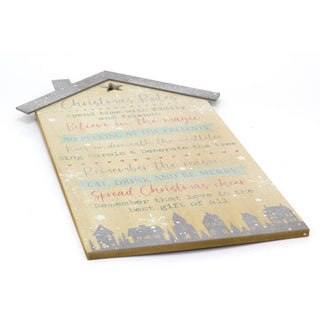 Christmas Rules
Spend time with family
and friends
Believe in the magic
NO PEEKING AT THE PRESENTS
Kiss underneath the mistletoe
Sing Carols & Decorate the tree
Remember the reason
EAT, DRINK AND BE MERRY
Spread Christmas cheer
Remember that love is the
best gift of all